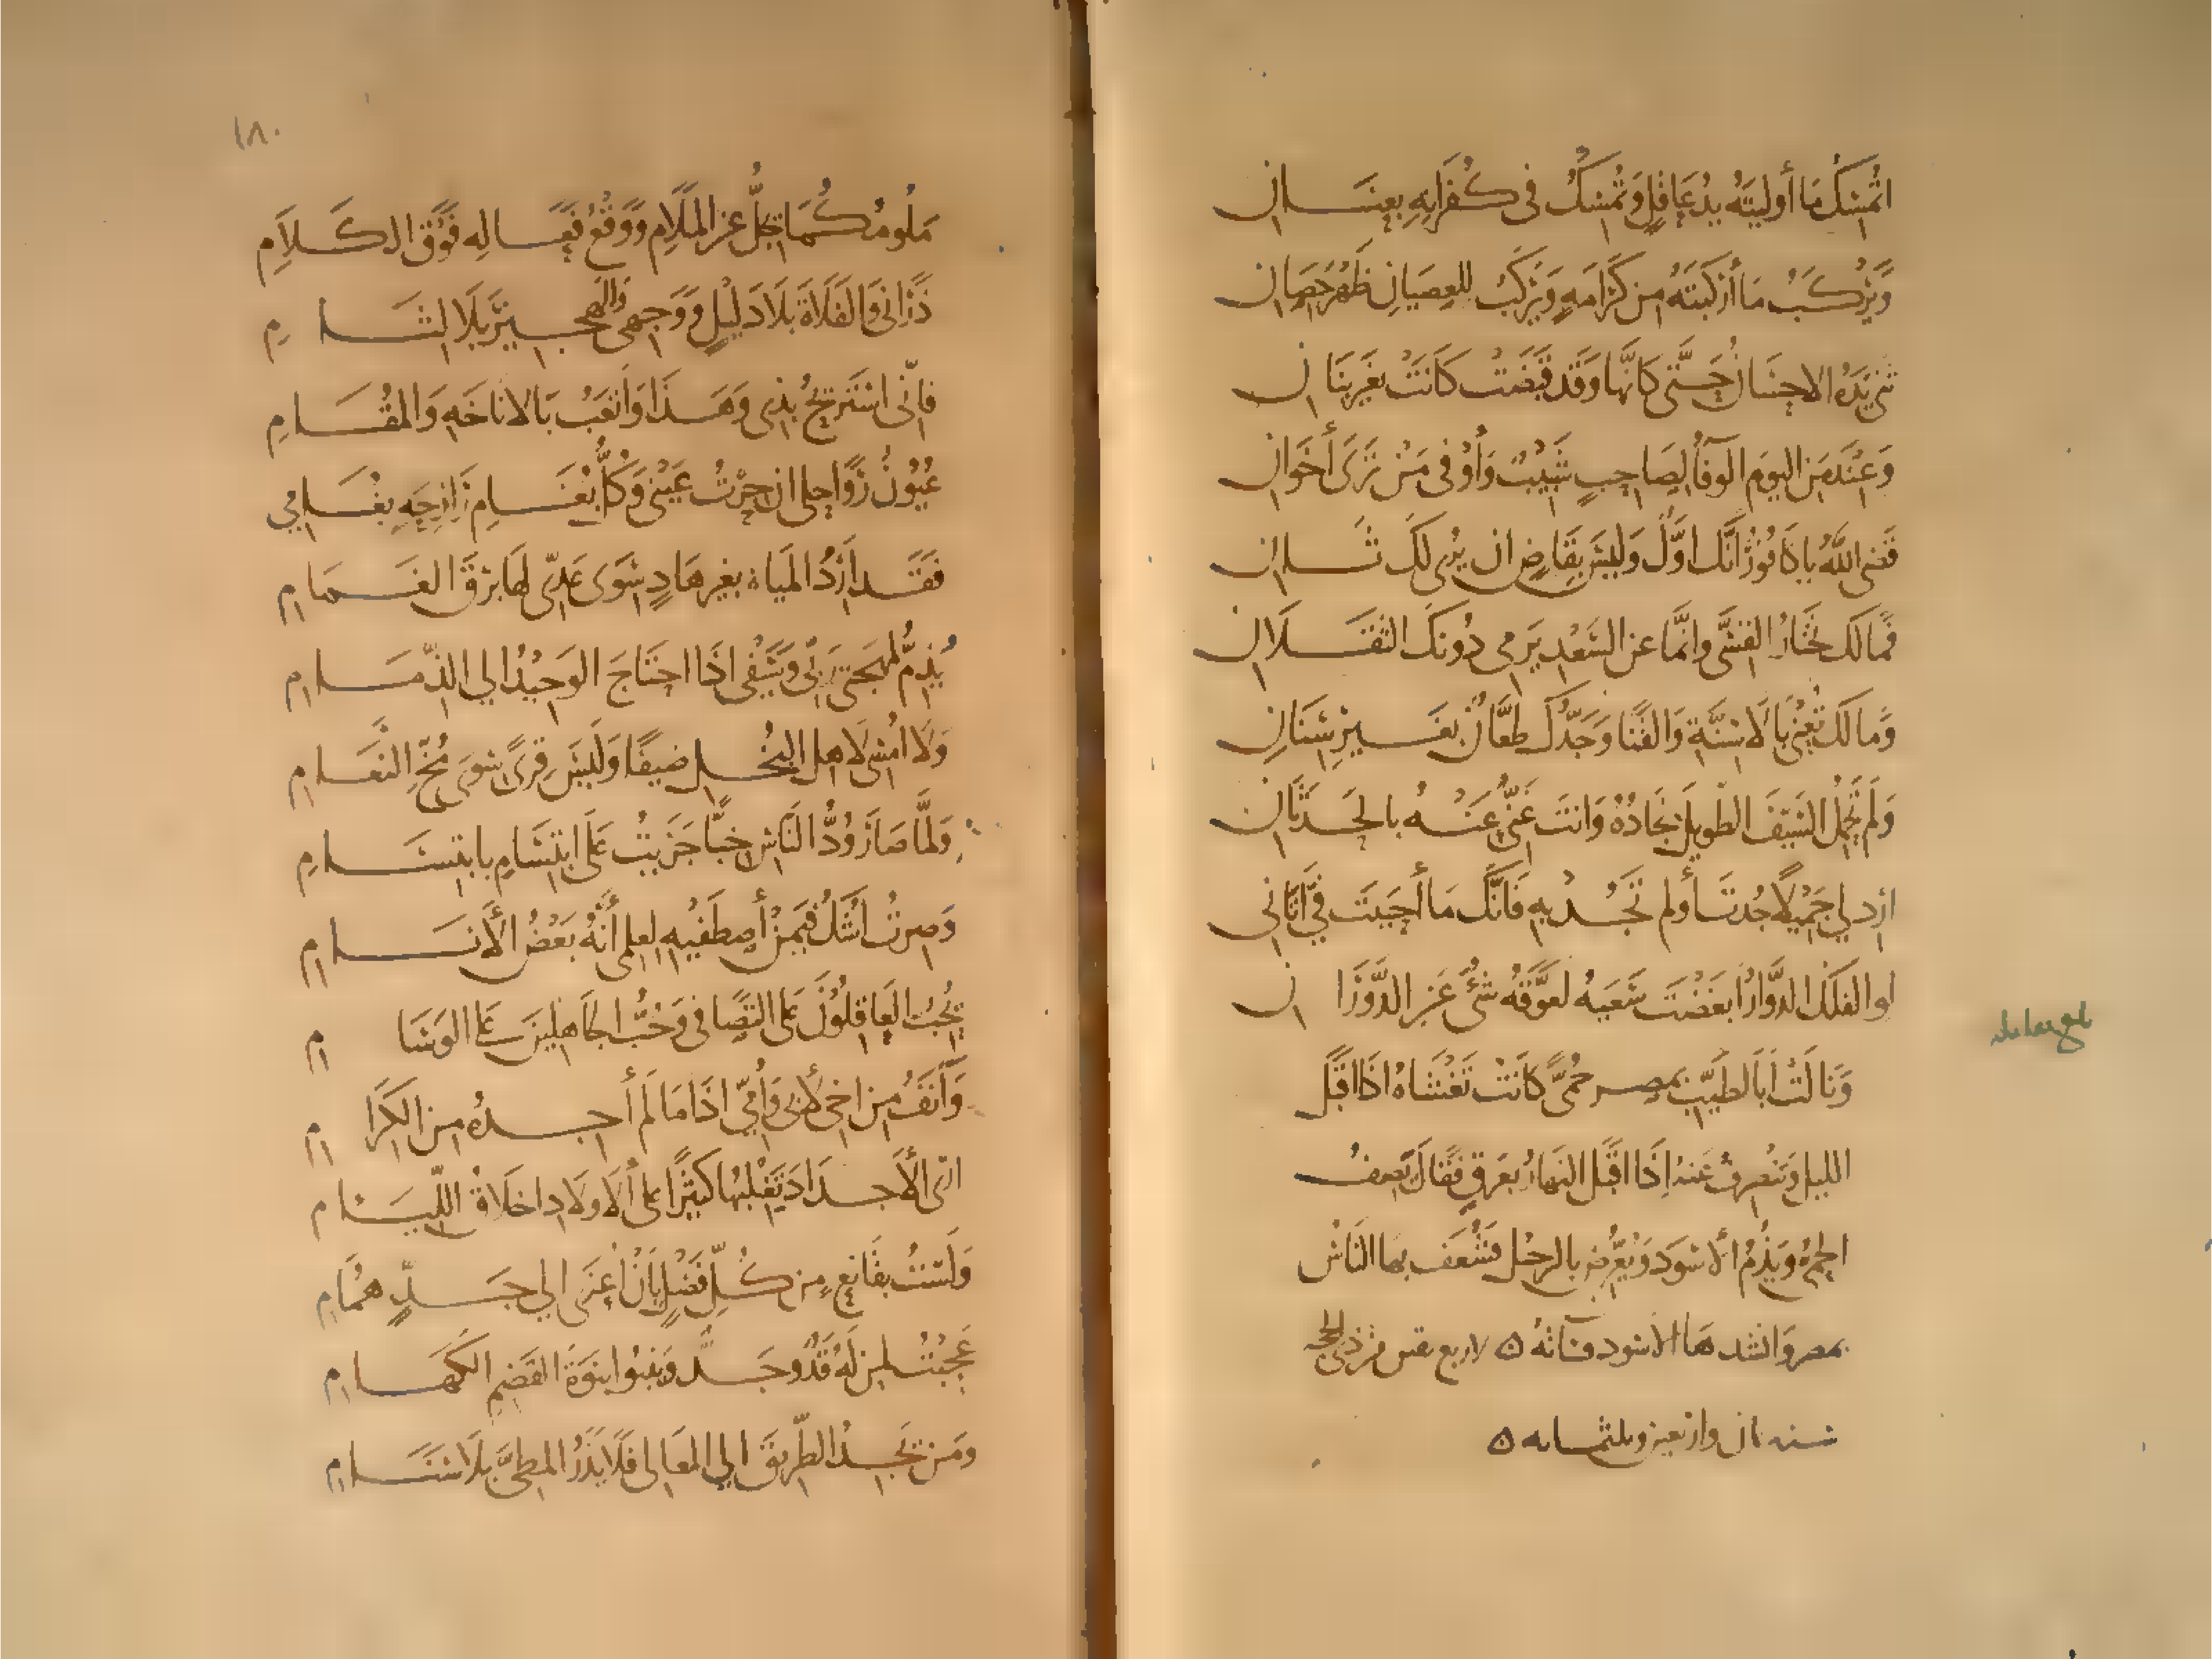 اتُمْسِكُ مَا أوليتَهُ يدُ عَاقلٍ وَتُمْسِكُ في كُفرَانِهِ بعِنَــان
وَيَرْكَبُ مَا أرْكَبتَهُ من كَرَامَةٍ وَيَرْكَبُ للعِصيَانِ ظَهْرَ حِصَان
ثنى يَدَهُ الاحِسَانُ حَتَّى كَانَّها وَقَد قُبِضَتْ كَانَتْ بغَيرِ بَنَان
وَعِنْدَ مَنِ اليومَ الوَفَاُ لِصَاحِبٍ شَبِيْبٌ وَأوْفى مَنْ تَرَى أخَوَان
قَضى اللّهُ يا كَافُوْرُ انَّك اوَّلٌ وَلَيْسَ بِقَاضٍ ان يُرى لَكَ ثَــان
فَمَا لَك تَخْتَارُ القِسِّى وانَّمَا عن السَّعْدِ يَرمِى دُونَكَ الثَّقَــلَان
وَمَا لَكَ تُعْنى بالاسِنَّةِ وَالقَنَا وَجَدُّكَ طعَّانٌ بغَــيرِ سِنَانِ
وَلم تَحْمِلُ السَّيفَ الطّويلَ نِجَادُهُ وَانتَ غَنِىٌّ عَنْـه بالحَـدَثَان
ارِد لي جَمِيْلًا جُدتَ أو لم تَجُـدْ بِهِ فَانَّكَ مَا أحبَبتَ فىَّ أتَانى
لو الفَلَكَ الدَّوَّارَ ابغَضْتَ سَعيَهُ لعوَّقَهُ شئٌ عَن الدَّوَرَان
وَنَالَتْ ابَا الطيّبِ بمصر حُمىًّ كَانَتْ تَغْشَاهُ اذَا اقبَلَ
الليل وَتَنْصرِفُ عَنهُ اذَا اقبَلَ النهَارُ بعَرقٍ فقَالَ يَصِفُ
الحمى وَيَذُمُّ الاسْوَدَ وَيُعَرّضُ بالرحْيل فشُعف بها النَّاسُ
بمصر وَانشدهَا الاسود فساته ٥ لاربع بقين من ذى الحجه
سنه ثمان واربعين وثلثمايه ٥
١٨٠
مَلُومُكُمَا يَجِلُّ عن المَلَامِ وَوَقْعُ فَعَــالِهِ فَوقَ الكَــلَامِ
ذَرَانى وَالفَلَاةَ بلَا دَلِيْلٍ وَوَجهى وَالهَجــيْرَ بلَا لثَــام
فانّى اسْتَريْحُ بذِى وَهَــذَا وَاتْعَبُ بالانَاخَهِ وَالمُقَــامِ
عُيُونُ رَوَاحِلى ان حِرْتُ عَيْنى وَكُلُّ بُغَــامِ رَازِحَهٍ بغَــامي
فقَــد ارِدُ المياهَ بغير هَادٍ سوَى عَدّى لهَا بَرْقَ الغَــمَام
يُذِمُّ لمهجَتى رَبّى وَسَيْفى اذَا احتَاجَ الوَحِيْدُ الى الذّمَــام
وَلَا امْسى لاهل البُخْــلِ ضَيفًا وَلَيْسَ قِرىً سوَى مُخِّ النَّعَــام
وَلَمَّا صَارَ وُدُّ النَّاسِ خِبًّا جَزَيتُ عَلَى ابتِسَامٍ بابتِسَــامِ
وَصِرتُ اشُكُّ فيمَنْ أصطَفيه لعِلمى أنَّهُ بَعْضُ الأنَــام
يُحبُّ العَاقِلُوْنَ عَلى التَّصَافى وَحُبُّ الجَاهِلِينَ عَلى الوَسَام
وَآنَفُ مِن اخى لأبى وَأُمّى اذَا مَا لَم أجــدهُ مِن الكِرَام
ارَى الأجــدَادَ تَغْلِبُهَا كَثِيْرًا عَلى الأولَادِ اخلَاقُ اللّيَــام
وَلَسْتُ بقَانعٍ من كُــلِّ فَضْلٍ بأَنْ اعْزَى الى جَــدٍّ همَام
عَجبْتُ لِمن لَهُ قَدٌّ وَحَــدٌّ وَيَنبُوا نبوَةَ القَضِمِ الكَهَــام
ومَن يَجــدُ الطَّريقَ الى المعَالى فَلَا يَذَرُ المطىَّ بلَا سَنَــام